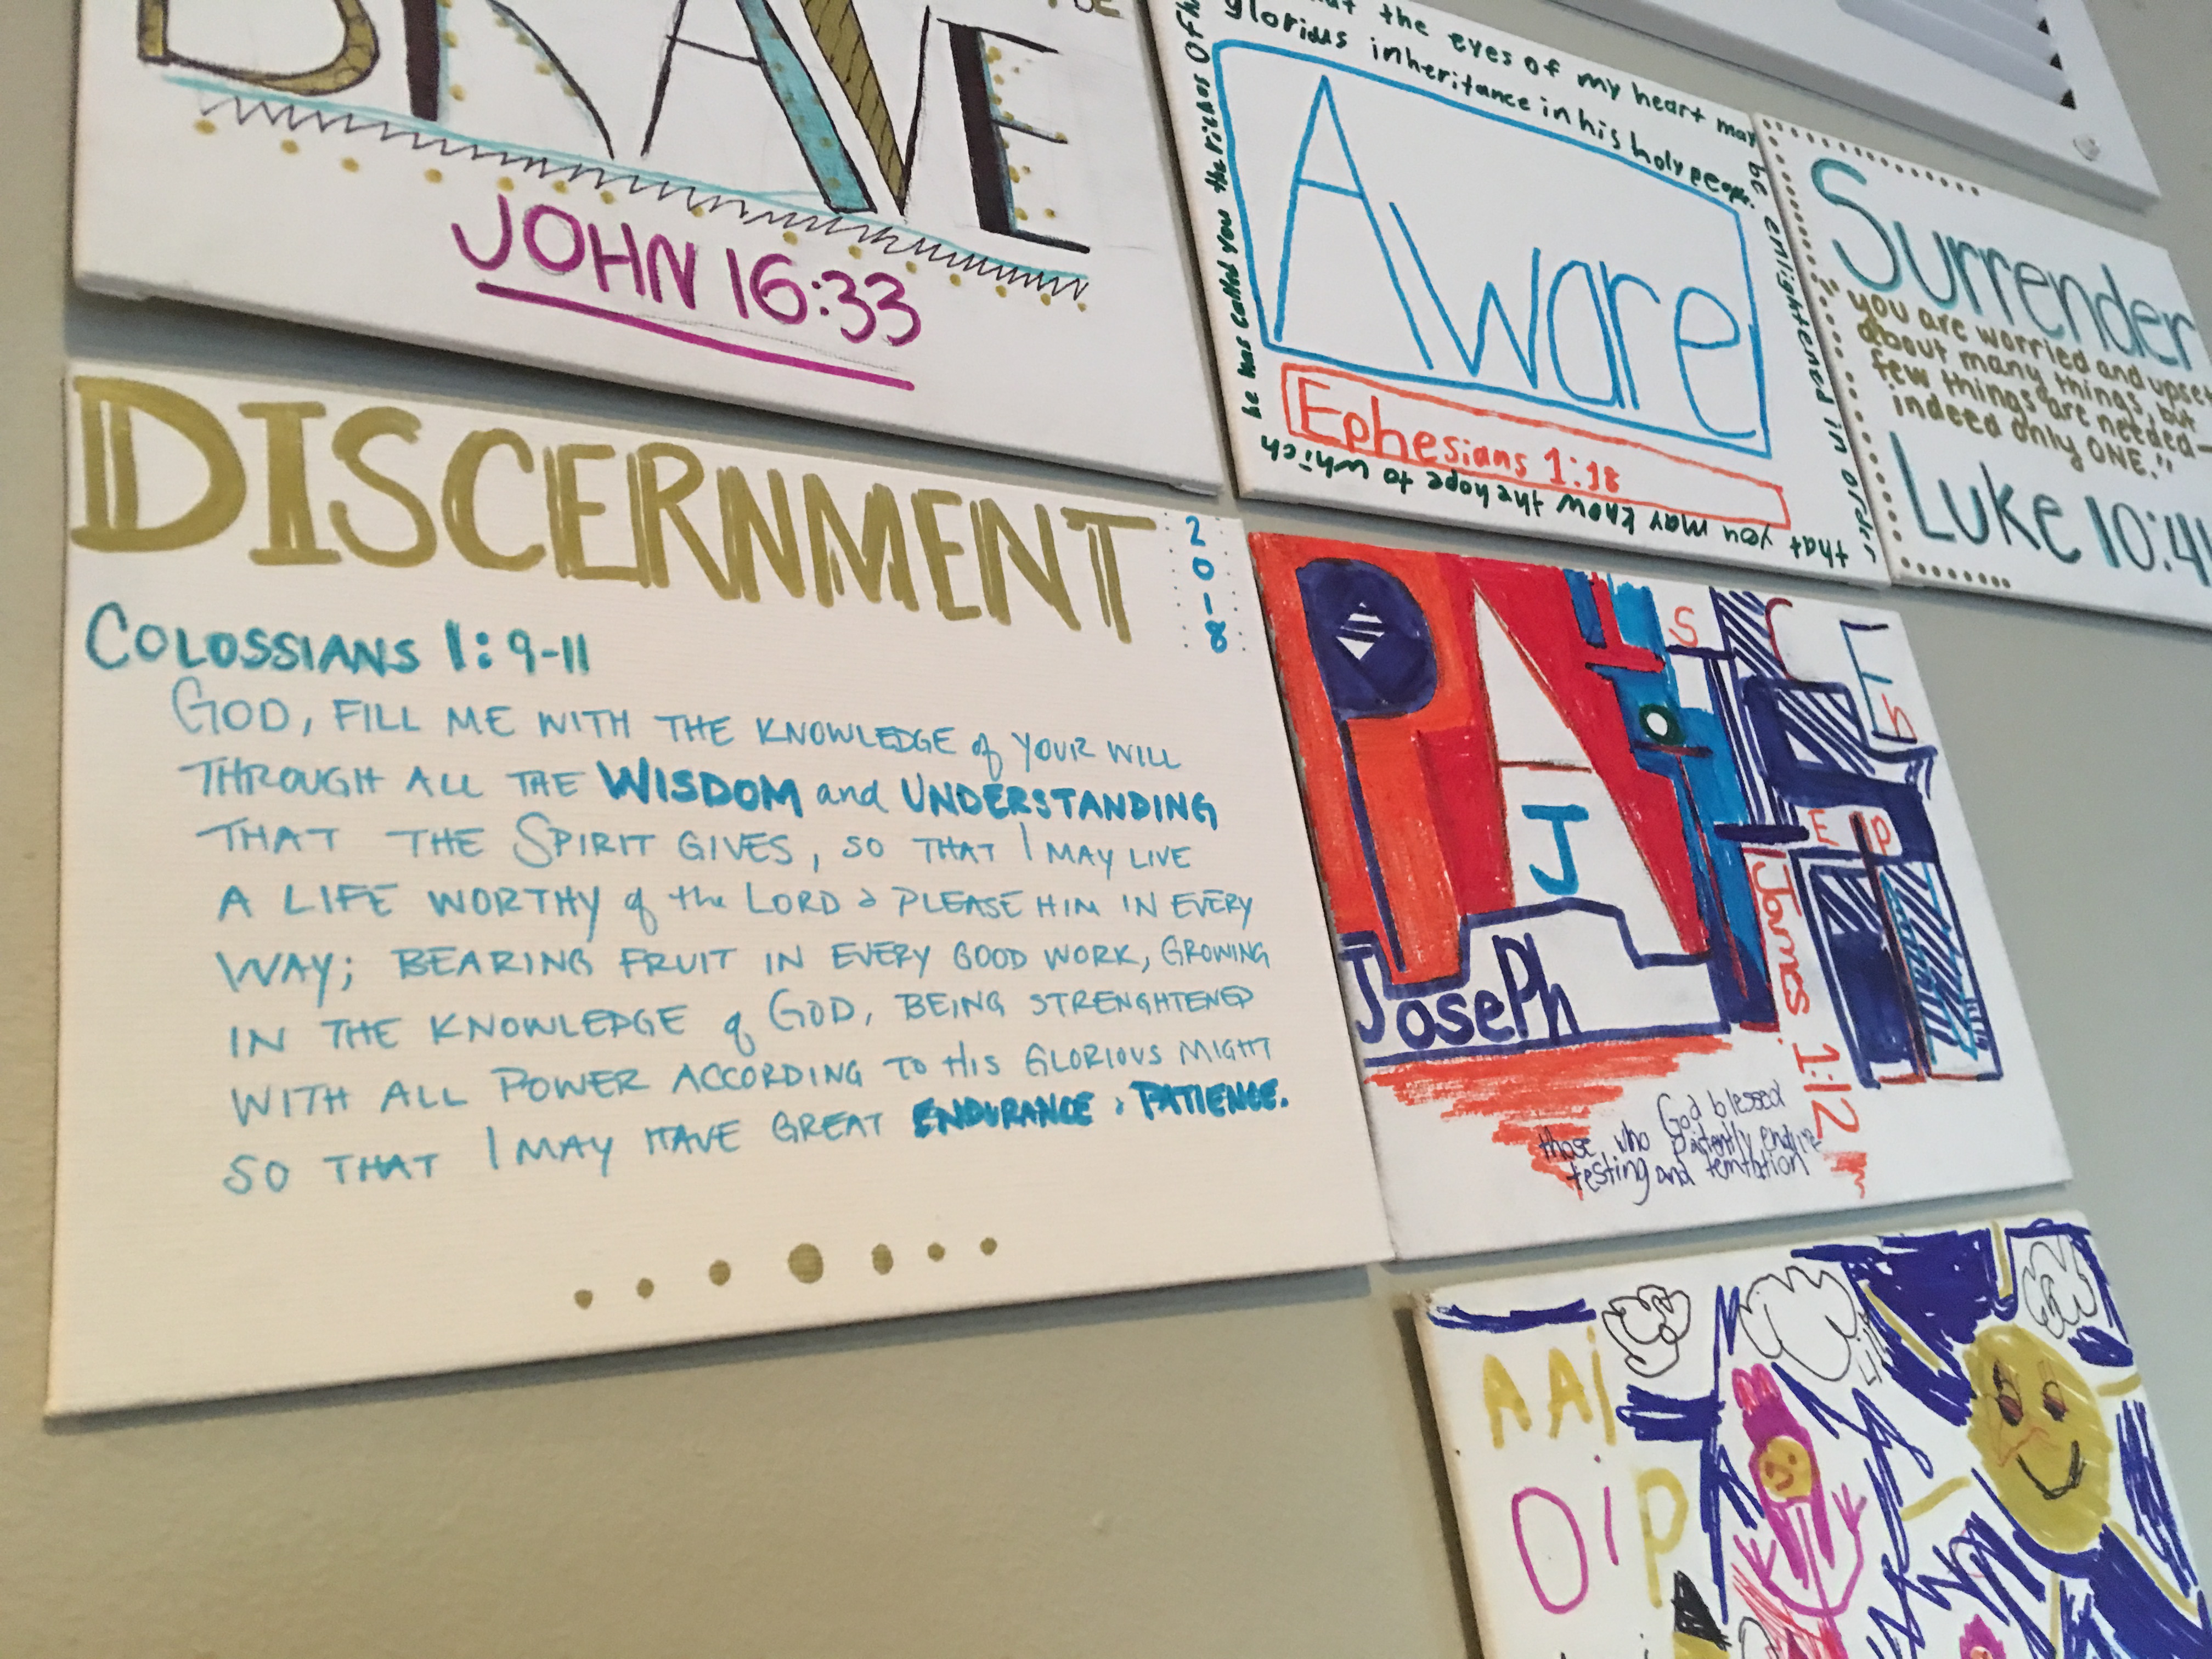 BRAVE
JOHN 16:33
the eyes of my heart may
be enlightened in order
that you may know the hope to which
he has called you the riches of his
glorious inheritance in his holy people
Aware
Ephesians 1:18
Surrender
"You are worried and upset
about many things, but
few things are needed—
indeed only ONE."
Luke 10:41
DISCERNMENT
2018
COLOSSIANS 1:9-11
GOD, FILL ME WITH THE KNOWLEDGE of YOUR WILL
THROUGH ALL THE WISDOM and UNDERSTANDING
THAT THE SPIRIT GIVES, SO THAT I MAY LIVE
A LIFE WORTHY of the LORD & PLEASE HIM IN EVERY
WAY; BEARING FRUIT IN EVERY GOOD WORK, GROWING
IN THE KNOWLEDGE of GOD, BEING STRENGHTENED
WITH ALL POWER ACCORDING TO HIS GLORIOUS MIGHT
SO THAT I MAY HAVE GREAT ENDURANCE & PATIENCE.
J
S
E
P
h
JosePh
James 1:12
God blessed
those who patiently endure
testing and temtation